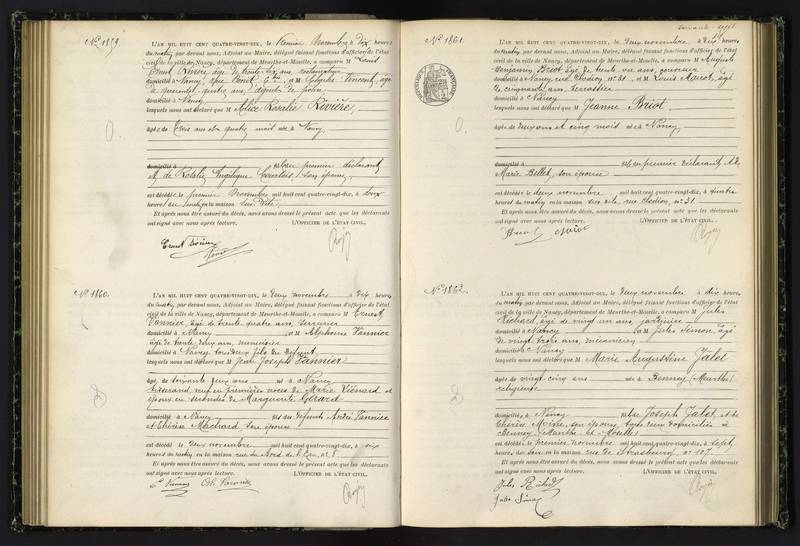 N° 1859.
L'AN MIL HUIT CENT QUATRE-VINGT-DIX, le Premier Novembre à dix heures
du matin par devant nous, Adjoint au Maire, délégué faisant fonctions d'officier de l'état
civil de la ville de Nancy, département de Meurthe-et-Moselle, a comparu M
Ernest Rivière âgé de trente six ans
domicilié à Nancy et M Vincent, âgé
de quarante quatre ans
domicilié à Nancy
lesquels nous ont déclaré que M Alice Rosalie Rivière,
âgée de trois ans et quatre mois née à Nancy
domicilié à premier déclarant
et de Rosalie son épouse,
est décédée le premier Novembre mil huit cent quatre-vingt-dix, à deux
heures du matin en la maison
Et après nous être assuré du décès, nous avons dressé le présent acte que les déclarants
ont signé avec nous après lecture. L'OFFICIER DE L'ÉTAT CIVIL,
N° 1860.
L'AN MIL HUIT CENT QUATRE-VINGT-DIX, le deux novembre à dix heures
du matin par devant nous, Adjoint au Maire, délégué faisant fonctions d'officier de l'état
civil de la ville de Nancy, département de Meurthe-et-Moselle, a comparu M Ernest
Vannier âgé de trente quatre ans, serrurier
domicilié à Nancy et M Alphonse Vannier
âgé de trente deux ans, menuisier
domicilié à Nancy tous deux fils du défunt
lesquels nous ont déclaré que M Jean Joseph Vannier
âgé de soixante deux ans né à Nancy
tisserand, veuf en premières noces de Marie et
époux en secondes de Marguerite Gérard
domicilié à Nancy fils de défunts André Vannier
et Thérèse Machard son épouse
est décédé le deux novembre mil huit cent quatre-vingt-dix, à six
heures du matin en la maison rue du Bord de l'Eau n° 8
Et après nous être assuré du décès, nous avons dressé le présent acte que les déclarants
ont signé avec nous après lecture. L'OFFICIER DE L'ÉTAT CIVIL,
E Vannier
N° 1861.
L'AN MIL HUIT CENT QUATRE-VINGT-DIX, le deux novembre à dix heures
du matin par devant nous, Adjoint au Maire, délégué faisant fonctions d'officier de l'état
civil de la ville de Nancy, département de Meurthe-et-Moselle, a comparu M Auguste
Benjamin Briot âgé de trente un ans,
domicilié à Nancy, rue Clodion n° 31 et M Louis Mairot, âgé
de cinquante ans, terrassier
domicilié à Nancy
lesquels nous ont déclaré que M Jeanne Briot
âgée de deux ans et cinq mois née à Nancy
domicilié à fille du premier déclarant et de
Marie Bellet, son épouse
est décédée le deux novembre mil huit cent quatre-vingt-dix, à quatre
heures du matin en la maison rue Clodion, n° 31
Et après nous être assuré du décès, nous avons dressé le présent acte que les déclarants
ont signé avec nous après lecture. L'OFFICIER DE L'ÉTAT CIVIL,
Briot Mairot
N° 1862.
L'AN MIL HUIT CENT QUATRE-VINGT-DIX, le deux novembre à dix heures
du matin par devant nous, Adjoint au Maire, délégué faisant fonctions d'officier de l'état
civil de la ville de Nancy, département de Meurthe-et-Moselle, a comparu M Jules
Richard, âgé de vingt un ans jardinier
domicilié à Nancy et M Jules Simon âgé
de vingt trois ans, mécanicien
domicilié à Nancy
lesquels nous ont déclaré que M Marie Augustine Jalet
âgée de vingt cinq ans née à Benney (Meurthe)
religieuse
domiciliée à Nancy fille de Joseph Jalet, et de
Thérèse son épouse, tous deux domiciliés à
Benney, Meurthe et Moselle
est décédée le premier novembre mil huit cent quatre-vingt-dix, à sept
heures du soir en la maison rue de Strasbourg, n° 107
Et après nous être assuré du décès, nous avons dressé le présent acte que les déclarants
ont signé avec nous après lecture. L'OFFICIER DE L'ÉTAT CIVIL,
Jules Richard
Jules Simon